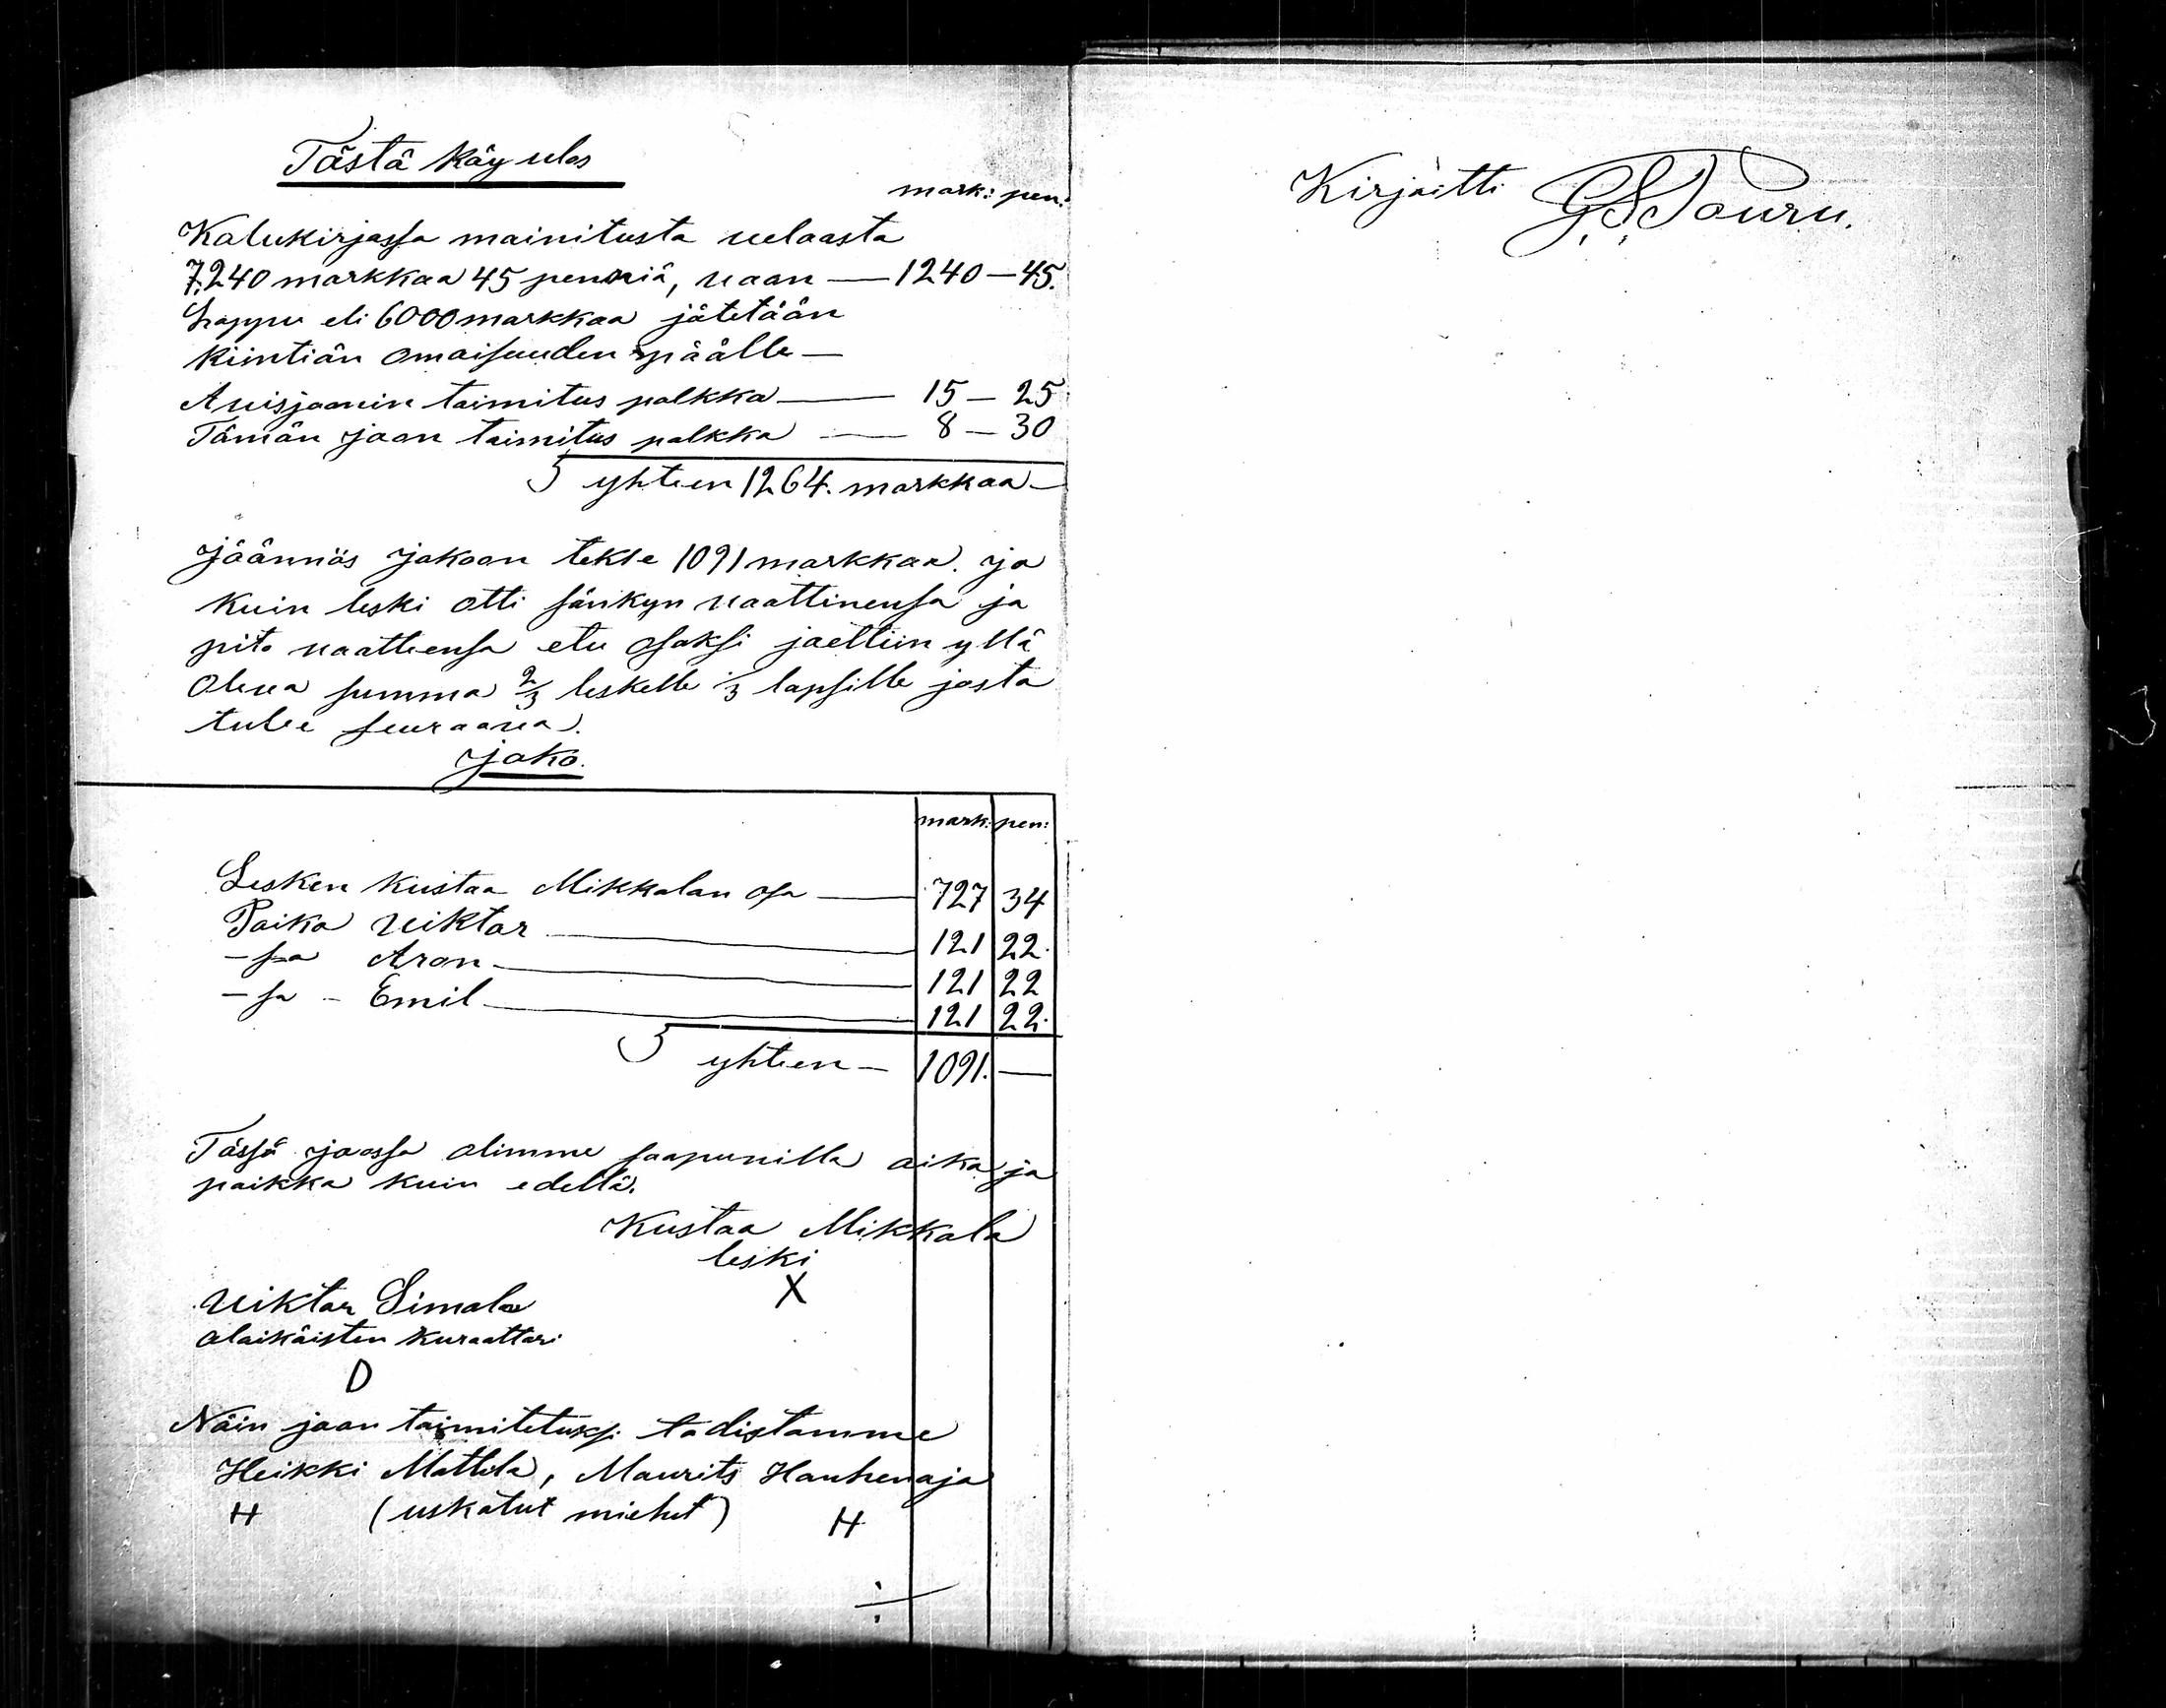 Tästä käy ulos
mark: pen:
Kalukirjassa mainitusta velaasta
7,240 markkaa 45 penniä, vaan — 1240 — 45.
Loppu eli 6000 markkaa jätetään
kiintiän omaisuuden päälle —
Avisjaanin taimitus palkka — 15 — 25
Tämän jaan taimitus palkka — 8 — 30
yhteen 1264. markkaa —
Jäännös jakoan tekse 1091 markkaa. ja
kuin leski otti sänkyn vaattinensa ja
pito vaatteensa etu osaksi jaettiin yllä
oleva summa 2/3 leskelle 1/3 lapsille josta
tulee seuraava.
jako.
mark: pen:
Lesken Kustaa Mikkalan osa — 727 34
Poika Viktor — 121 22.
- sa Aron — 121 22
- sa - Emil — 121 22.
yhteen — 1091. —
Tässä jaossa olimme saapuvilla aika ja
paikka kuin edellä.
Kustaa Mikkala
leski
X
Viktor Simola
alaikäisten kuraattori
D
Näin jaan taimitetuksi todistamme
Heikki Mattila, Maurits Hanhenoja
H (uskotut miehet) H
Kirjoitti G. S. Touru.